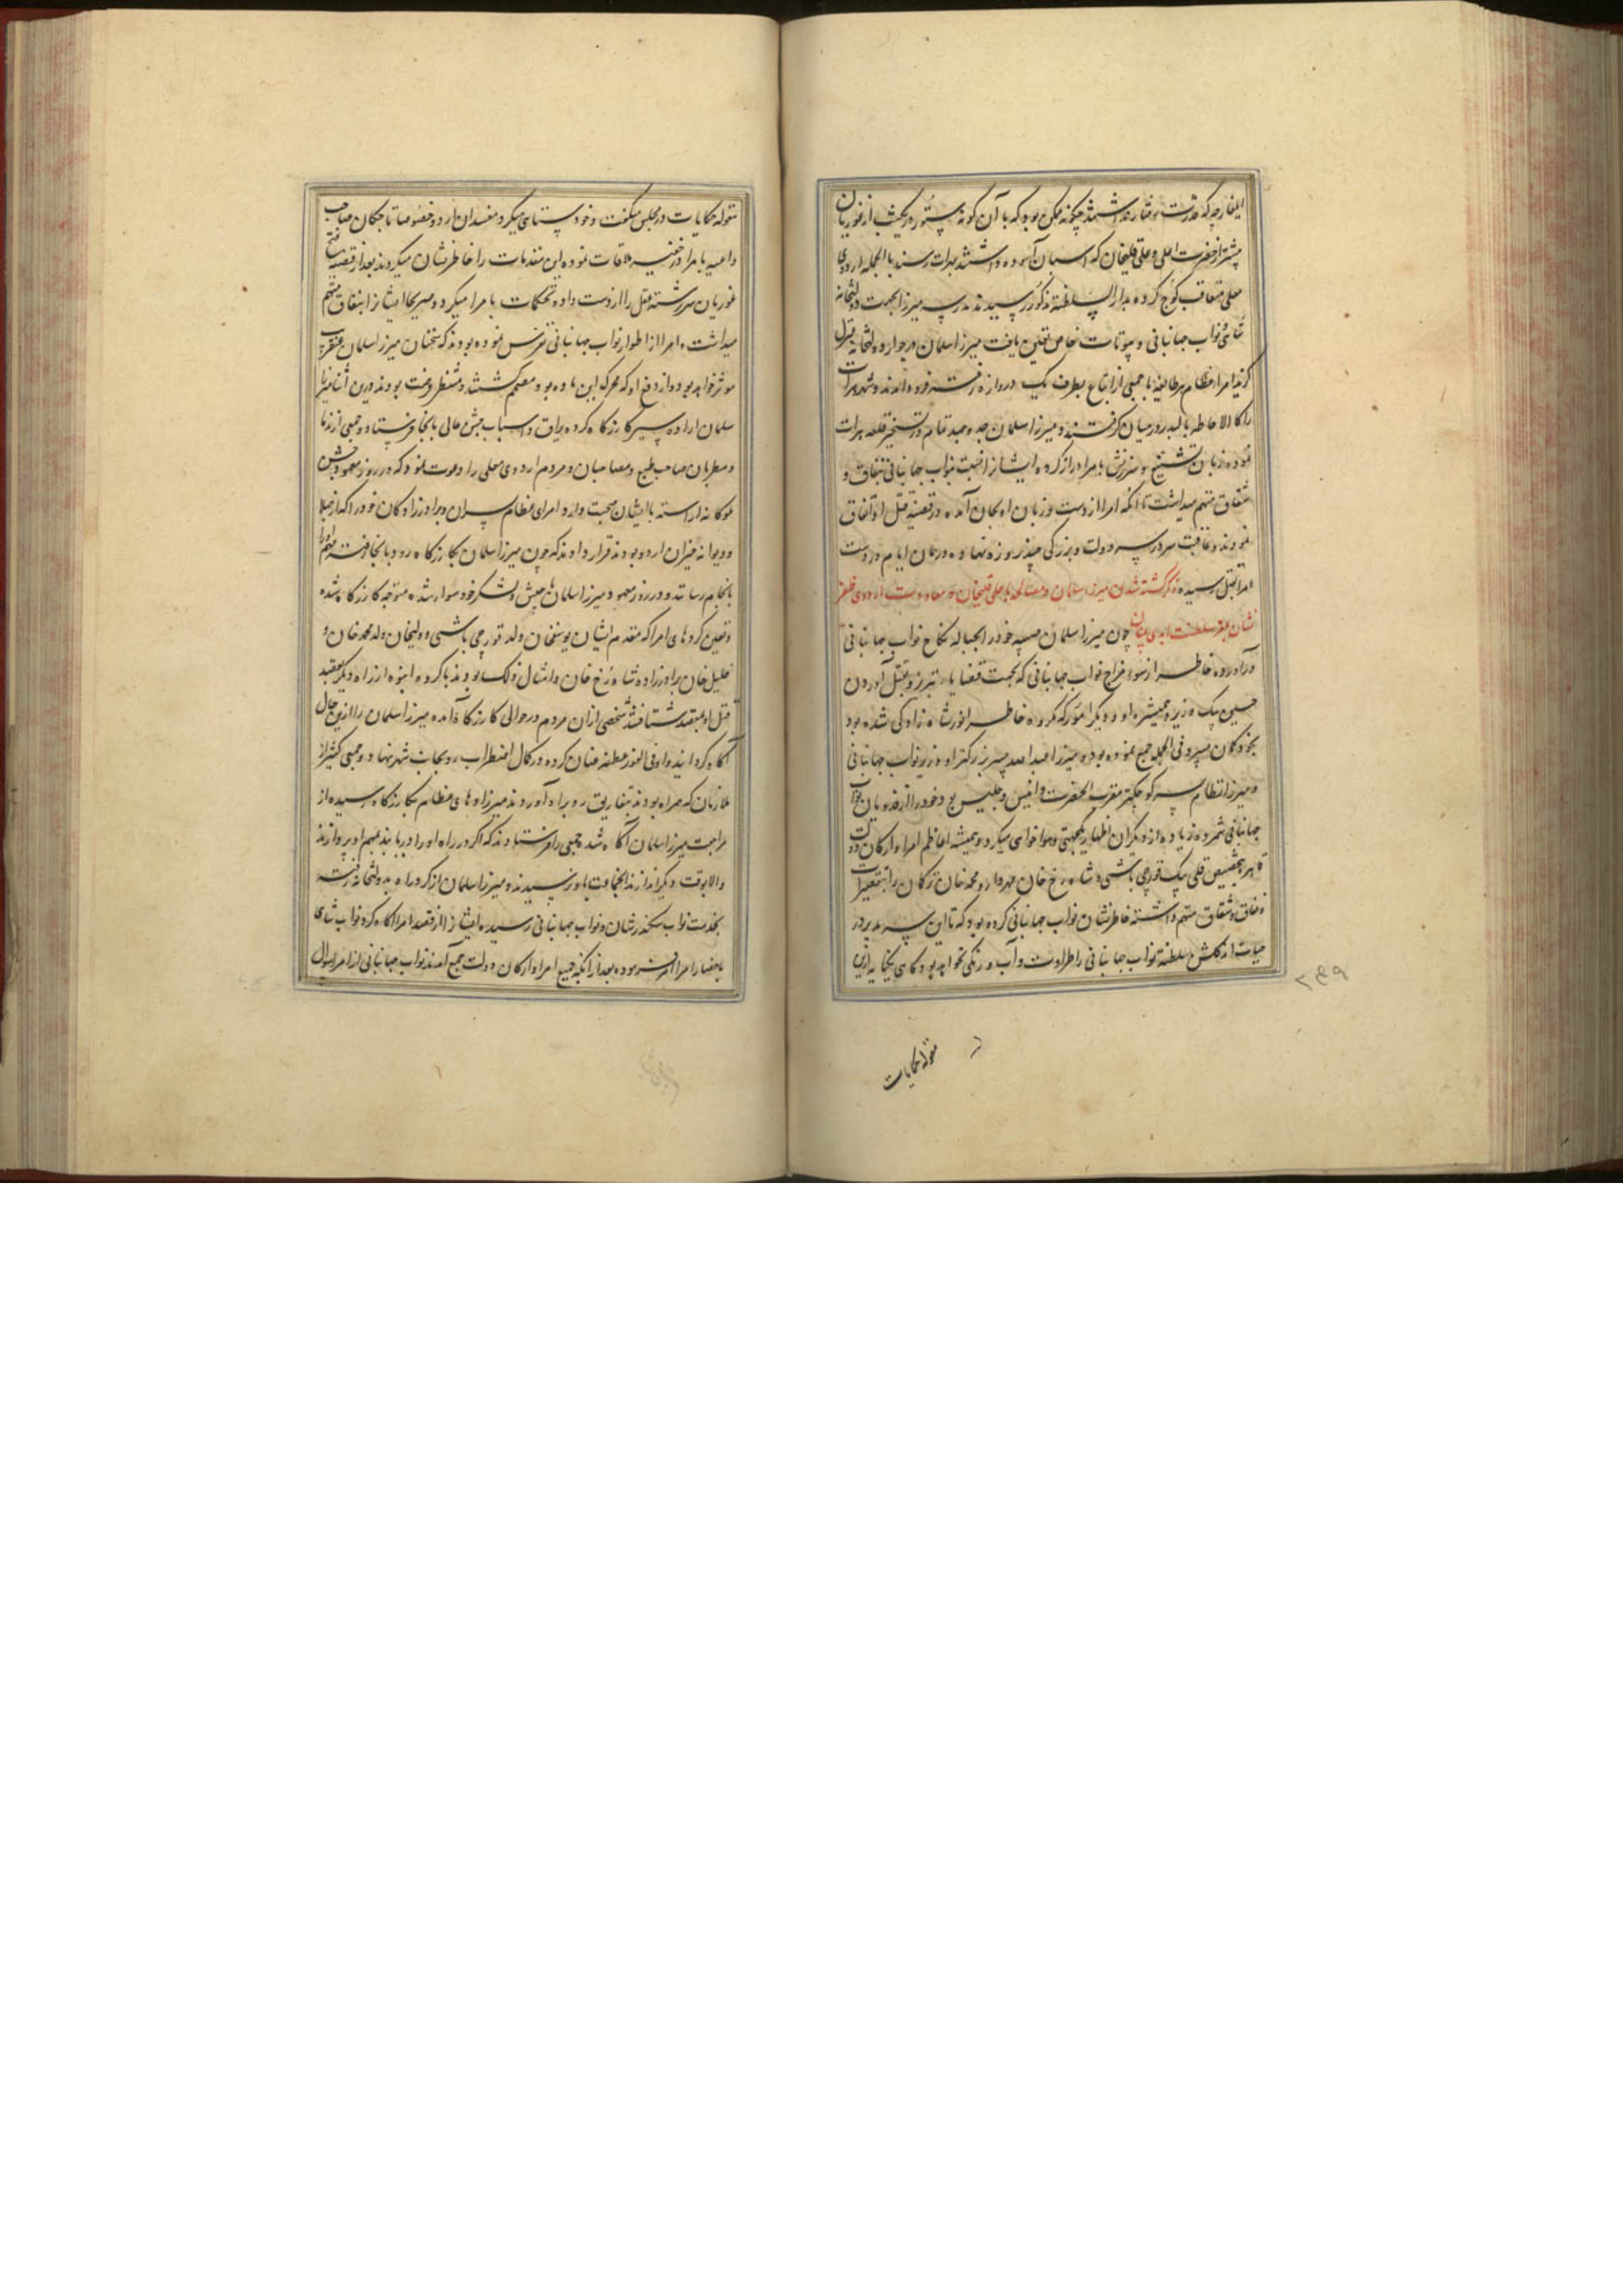 ایلغار چه که قدرت رفتار نداشتند چگونه ممکن بود که با آن گونه ستور در یکشب از غوریان
پیشتر از حضرت اعلی و علی قلیخان که اسبان آسوده داشتند بهرات رسند بالجمله اردوی
معلی متعاقب کوچ کرده بدار السلطنه مذکور رسیدند مدرسه میرزا بجهت دولتخانه
شاهی و نواب جهانبانی و بیوتات خاص تعیین یافت میرزا سلمان در جوار دولتخانه منزل
گزید امراء عظام هر طایفه با جمعی از اتباع بطرف یک دروازه رفته فرود آمدند و شهر هرات
را کالاحاطه بالبدر در میان گرفتند و میرزا سلمان جد و جهد تمام در تسخیر قلعه هرات
نموده زبان تشنیع و سرزنش بامرا دراز کرده ایشانرا نسبت بنواب جهانبانی بنفاق و
شقاق متهم میداشت تا آنکه امرا از دست و زبان او بجان آمده در قضیه قتل او اتفاق
نمودند و عاقبت سر در سر دولت و بزرگی چند روزه نهاده در همان ایام در دست
امرا بقتل رسید ذکر کشته شدن میرزا سلمان و مصالحه با علی قلیخان و معاودت اردوی ظفر
نشان بمقر سلطنت ابدی بنیان چون میرزا سلمان صبیه خود را بحباله نکاح نواب جهانبانی
درآورده خاطر از سوء مزاج نواب جهانبانی که بجهت قضایاء تبریز و بقتل آوردن
حسین بیک وزیر و همشیره او و دیگر امور که مکروه خاطر انور شاهزادگی شده بود
بخودگمان میبرد فی الجمله جمع نموده بود و میرزا عبدالله پسر بزرگتر او وزیر نواب جهانبانی
و میرزا نظام پسر کوچکتر مقرب الحضرت و انیس و جلیس بود خود را از فدویان نواب
جهانبانی شمرده زیاده از دیگران اظهار یکجهتی و هواخواهی میکرد و همیشه اعاظم امراء و ارکان دولت
قاهره بتخصیص قلی بیک قورچی باشی و شاهرخ خان مهردار و محمد خان ترکمان را بتقصیرات
و نفاق و شقاق متهم داشته خاطرنشان نواب جهانبانی کرده بود که تا این سه مدبر در
حیات اند گلشن سلطنت نواب جهانبانی را طراوت و آب و رنگی نخواهد بود گاهی بکنایه ازین
مقوله حکایات
مقوله حکایات در مجلس میگفت و خودستایی میکرد مفسدان اردو خصوصا تاجیکان صاحب
داعیه بامرا در خفیه ملاقات نموده این مقدمات را خاطرنشان میکردند بعد از قضیه فتح
غوریان سررشته عقل را از دست داده تحکمات بامرا میکرد و صریحا ایشانرا بنفاق متهم
میداشت و امرا از اطوار نواب جهانبانی تفرس نموده بودند که سخنان میرزا سلمان عنقریب
موثر خواهد بود و از دفع او که محرک این ماده بود مصمم گشته و منتظر وقت بودند درین اثنا میرزا
سلمان اراده سیر کازرگاه کرده یراق و اسباب جشن عالی بانجا فرستاد و جمعی از ندما
و مطربان صاحب طبع و مصاحبان و مردم اردوی معلی را دعوت نمود که در روز معهود جشن
ملوکانه آراسته با ایشان صحبت دارد امرای عظام پسران و برادرزادگان خود را که از جهلا
و دیوانه خیزان اردو بودند قرار دادند که چون میرزا سلمان بکازرگاه رود بانجا رفته مهم او را
بانجام رسانند و در روز معهود میرزا سلمان با جیش و لشکر خود سوار شده متوجه کازرگاه شده
و تعیین کردهای امرا که مقدم ایشان یوسفخان ولد قورچی باشی و ولیخان ولد محمد خان و
خلیل خان برادرزاده شاهرخ خان و امثال ذلک بودند با گروه انبوه از راه دیگر بقصد
قتل او بمقصد شتافتند شخصی از ان مردم در حوالی کازرگاه آمده میرزا سلمان را ازین حال
آگاه گردانید و او فی الفور عطف عنان کرده در کمال اضطراب رو بجانب شهر نهاد و جمعی کثیر از
ملازمان که همراه بودند بتفاریق رو براه آوردند میرزاده های عظام بکازرگاه رسیده از
مراجعت میرزا سلمان آگاه شد جمعی را فرستادند که اگر در راه او را دریابند بمهم او پردازند
و الا بوقت دیگر اندازند آنجماعت باو نرسیدند و میرزا سلمان از گرد راه بدولتخانه رفته
بخدمت نواب سکندر شان و نواب جهانبانی رسیده ایشانرا از قصد امرا آگاه کرد نواب شاهی
باحضار امرا امر فرموده بعد از آنکه جمیع امرا و ارکان دولت جمع آمدند نواب جهانبانی از امرا سوال